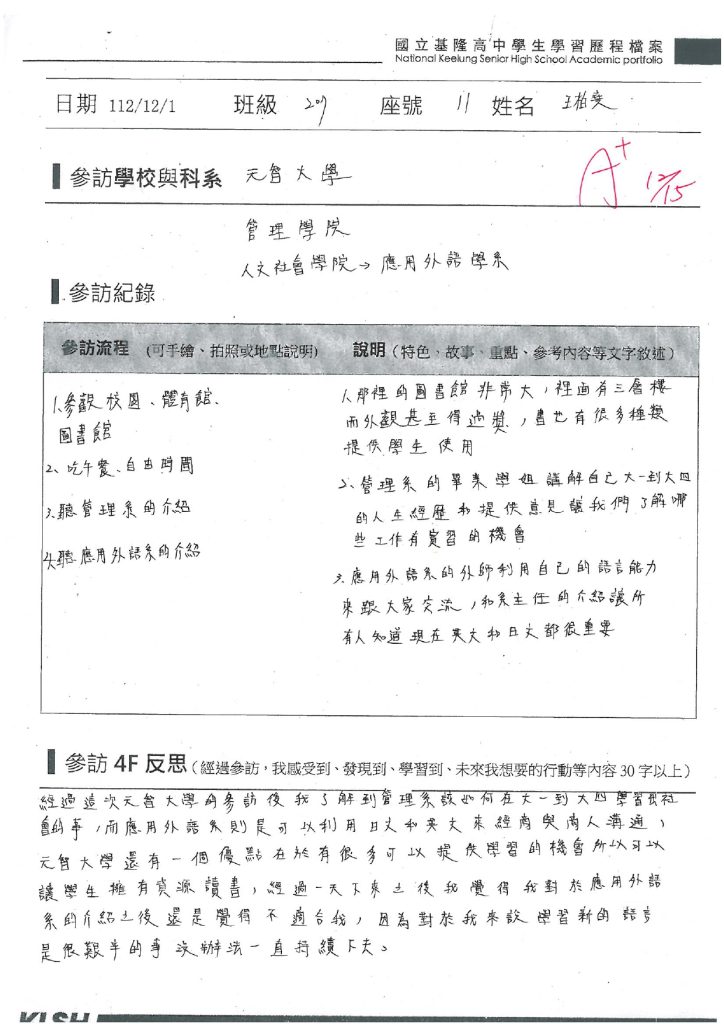 國立基隆高中學生學習歷程檔案
National Keelung Senior High School Academic portfolio
日期 112/12/1 班級 207 座號 11 姓名 王柏雯
參訪學校與科系 元智大學
A+ 12/15
管理學院
人文社會學院→應用外語學系
參訪紀錄
參訪流程 (可手繪、拍照或地點說明) 說明(特色、故事、重點、參考內容等文字敘述)
1.參觀校園、體育館、
圖書館
2、吃午餐、自由時間
3.聽管理系的介紹
4.聽應用外語系的介紹
1.那裡的圖書館非常大,裡面有三層樓
而外觀甚至得過獎,書也有很多種類
提供學生使用
2、管理系的畢業學姐講解自己大一到大四
的人生經歷和提供意見讓我們了解哪
些工作有實習的機會
3.應用外語系的外師利用自己的語言能力
來跟大家交流,和系主任的介紹讓所
有人知道現在英文和日文都很重要
參訪 4F 反思(經過參訪,我感受到、發現到、學習到、未來我想要的行動等內容 30 字以上)
經過這次元智大學的參訪後我了解到管理系該如何在大一到大四學習出社
會的事,而應用外語系則是可以利用日文和英文來經商與商人溝通,
元智大學還有一個優點在於有很多可以提供學習的機會所以可以
讓學生擁有資源讀書,經過一天下來之後我覺得我對於應用外語
系的介紹之後還是覺得不適合我,因為對於我來說學習新的語言
是很艱辛的事沒辦法一直持續下去。
KLSH